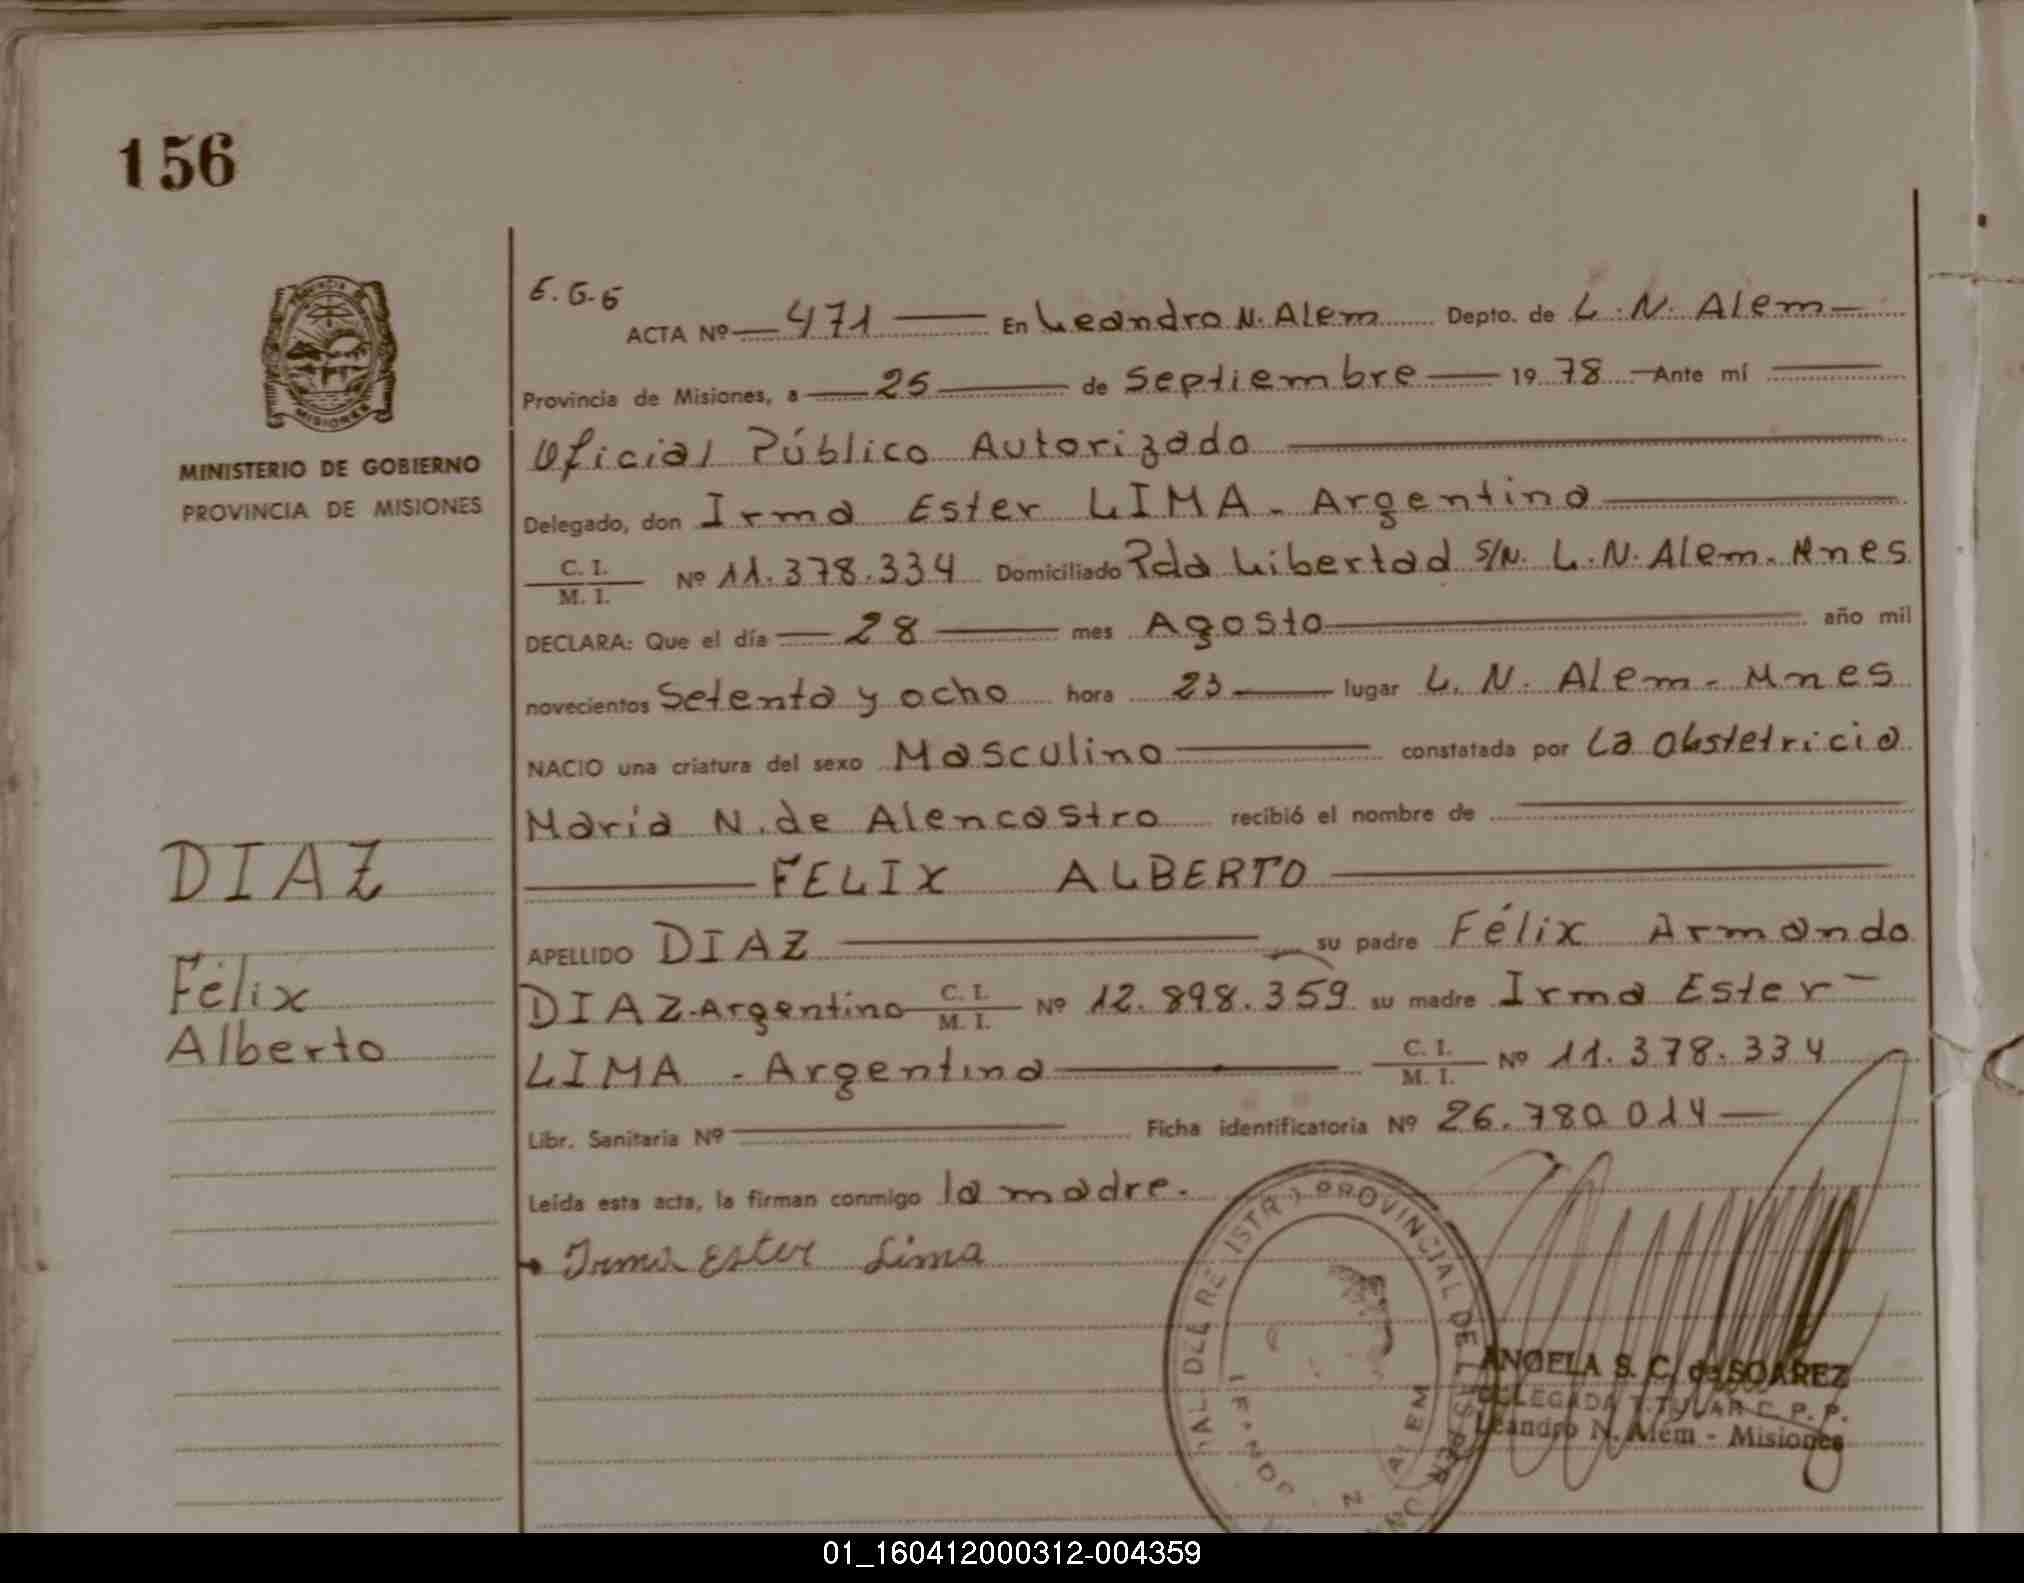 156
PROVINCIA DE
MISIONES
MINISTERIO DE GOBIERNO
PROVINCIA DE MISIONES
E.G.G
ACTA Nº 471 En Leandro N. Alem Depto. de L. N. Alem
Provincia de Misiones, a 25 de Septiembre 1978 Ante mí
Oficial Público Autorizado
Delegado, don Irma Ester LIMA - Argentina
C. I.
M. I. Nº 11.378.334 Domiciliado Pda Libertad S/N. L. N. Alem. Mnes
DECLARA: Que el día 28 mes Agosto año mil
novecientos Setenta y ocho hora 23 lugar L. N. Alem - Mnes
NACIO una criatura del sexo Masculino constatada por La Obstetricia
Maria N. de Alencastro recibió el nombre de
FELIX ALBERTO
APELLIDO DIAZ su padre Félix Armando
DIAZ - Argentino C. I. M. I. Nº 12.898.359 su madre Irma Ester
LIMA - Argentina C. I. M. I. Nº 11.378.334
Libr. Sanitaria Nº Ficha identificatoria Nº 26.780.014
Leída esta acta, la firman conmigo la madre.
Irma Ester Lima
DIAZ
Félix
Alberto
PROVINCIAL DE LAS PER
ALEM
ANGELA S. C. de SOAREZ
DELEGADA TITULAR C. P. P.
Leandro N. Alem - Misiones
01_160412000312-004359